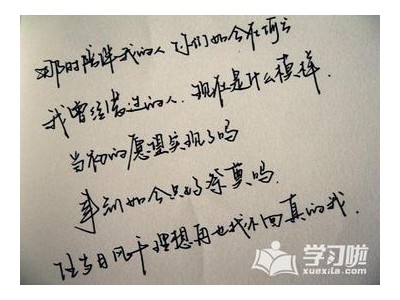 那时陪伴我的人 你们如今在何方
我曾经爱过的人. 现在是什么模样.
当初的愿望实现了吗
事到如今只好祭奠吗.
任岁月风干理想再也找不回真的我.
学习啦
xuexila.com